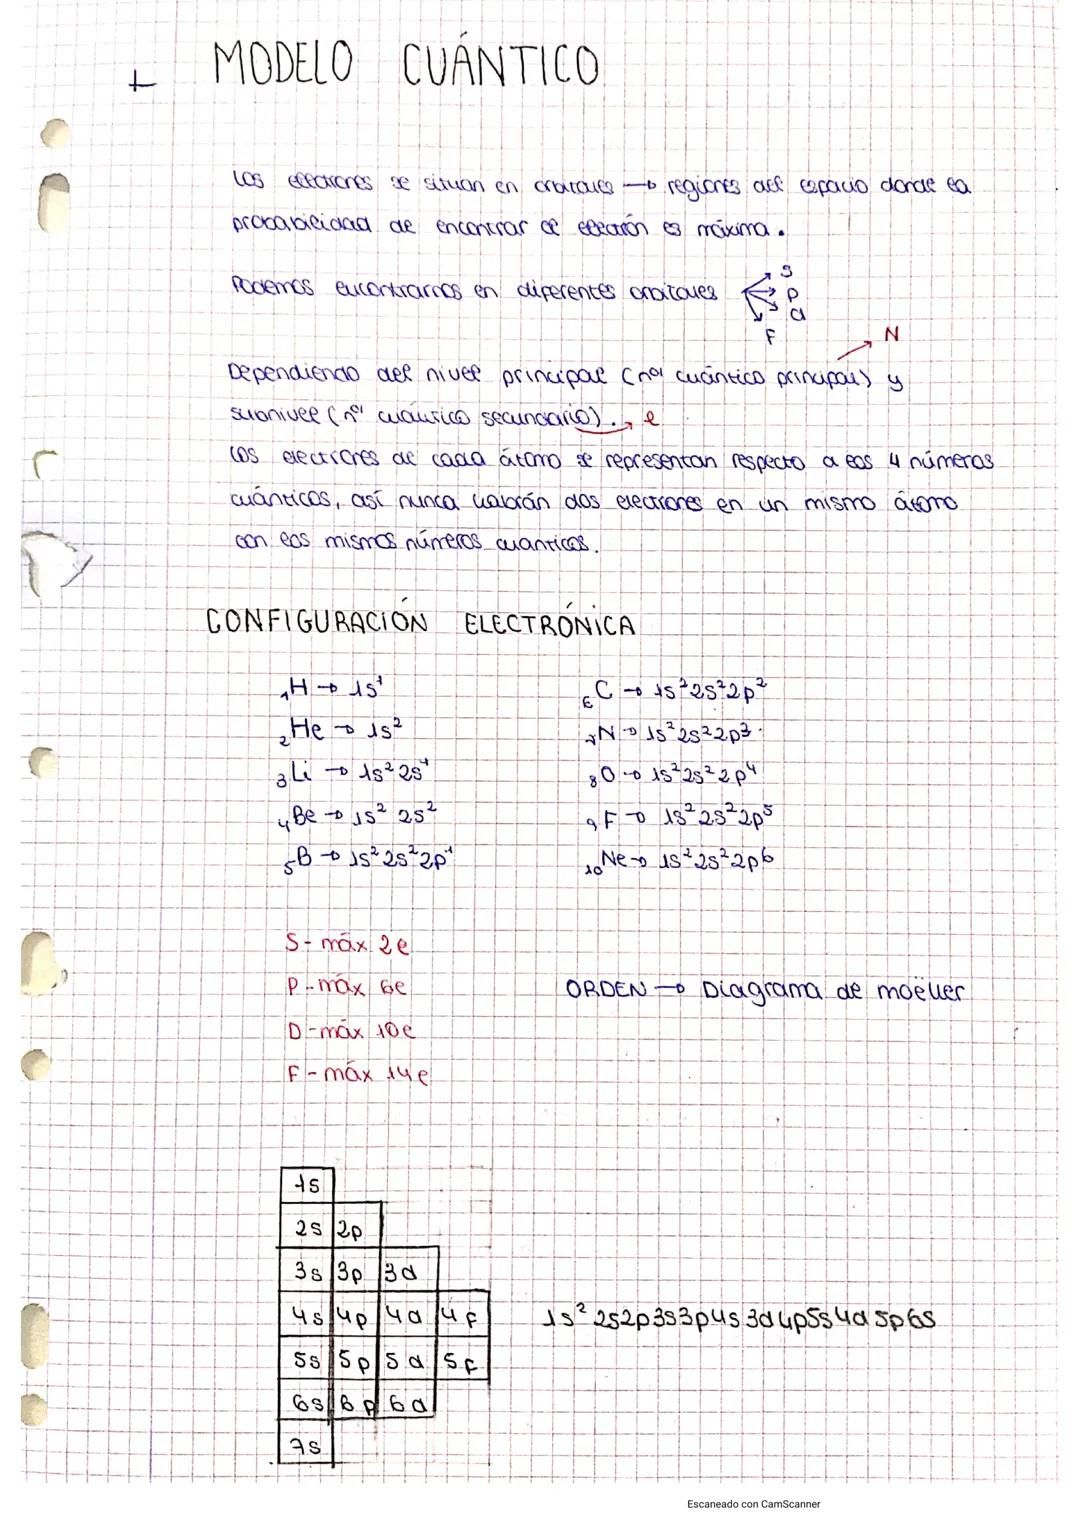 + MODELO CUÁNTICO
Los electrones se situan en orbitales → regiones del espacio donde la
probabilidad de encontrar el electrón es máxima.
Podemos encontrarnos en diferentes orbitales
S
P
d
F
N
Dependiendo del nivel principal (nº cuántico principal) y
subnivel (nº cuántico secundario). → l
Los electrones de cada átomo se representan respecto a los 4 números
cuánticos, así nunca habrán dos electrones en un mismo átomo
con los mismos números cuanticos.
CONFIGURACIÓN ELECTRÓNICA
₁H → 1s¹
₆C → 1s²2s²2p²
₂He → 1s²
₇N → 1s²2s²2p³
₃Li → 1s²2s¹
₈O → 1s²2s²2p⁴
₄Be → 1s² 2s²
₉F → 1s²2s²2p⁵
₅B → 1s²2s²2p¹
₁₀Ne → 1s²2s²2p⁶
S - máx 2e
P - máx 6e
ORDEN → Diagrama de moëller
D - máx 10e
F - máx 14e
1s
2s 2p
3s 3p 3d
4s 4p 4d 4f
1s² 2s2p3s3p4s3d4p5s4d5p6s
5s 5p 5d 5f
6s 6p 6d
7s
Escaneado con CamScanner